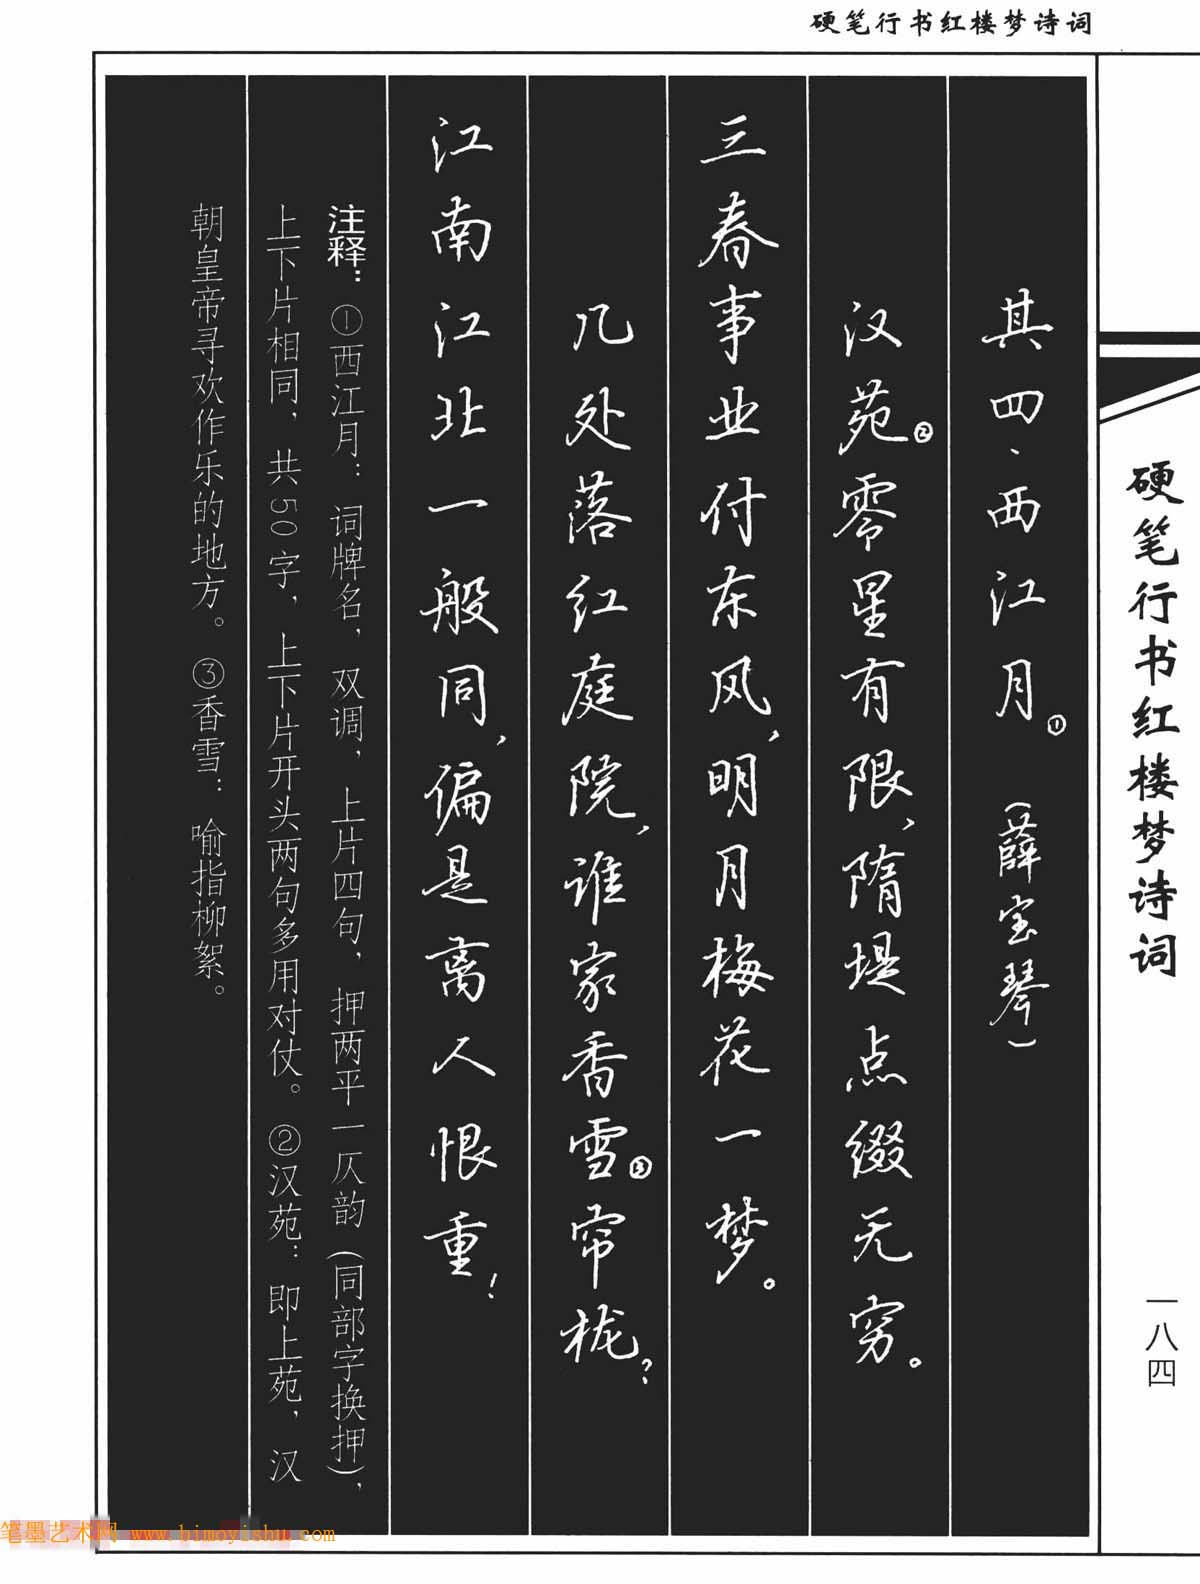 硬笔行书红楼梦诗词
其四、西江月①（薛宝琴）
汉苑②零星有限，隋堤点缀无穷。
三春事业付东风，明月梅花一梦。
几处落红庭院，谁家香雪③帘栊？
江南江北一般同，偏是离人恨重！
注释：①西江月：词牌名，双调，上片四句，押两平一仄韵（同部字换押），
上下片相同，共50字，上下片开头两句多用对仗。②汉苑：即上苑，汉
朝皇帝寻欢作乐的地方。③香雪：喻指柳絮。
硬笔行书红楼梦诗词
一八四
笔墨艺术网 www.bimoyishu.com